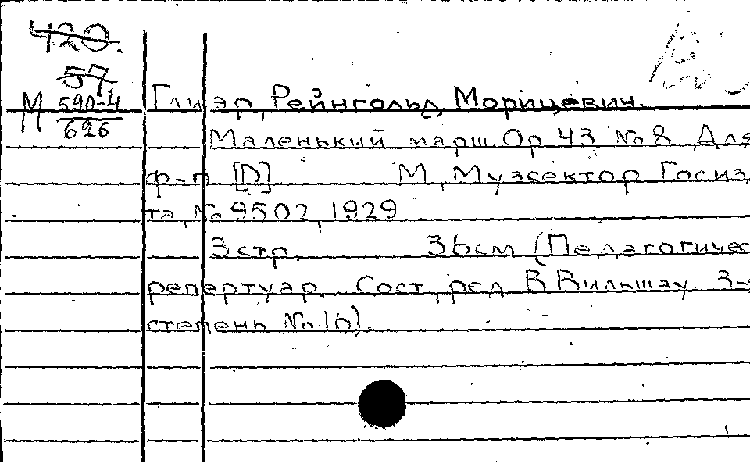 420.
57
М 590-4
626
Глиэр, Рейнгольд Морицевич.
Маленький марш. Op. 43 № 8. Для
ф-п. [D] М., Музсектор Госиз
та, № 9502, 1929
3 стр. 36 см (Педагогичес
репертуар. Сост., ред. В. Вильшау. 3-я
степень № 16).